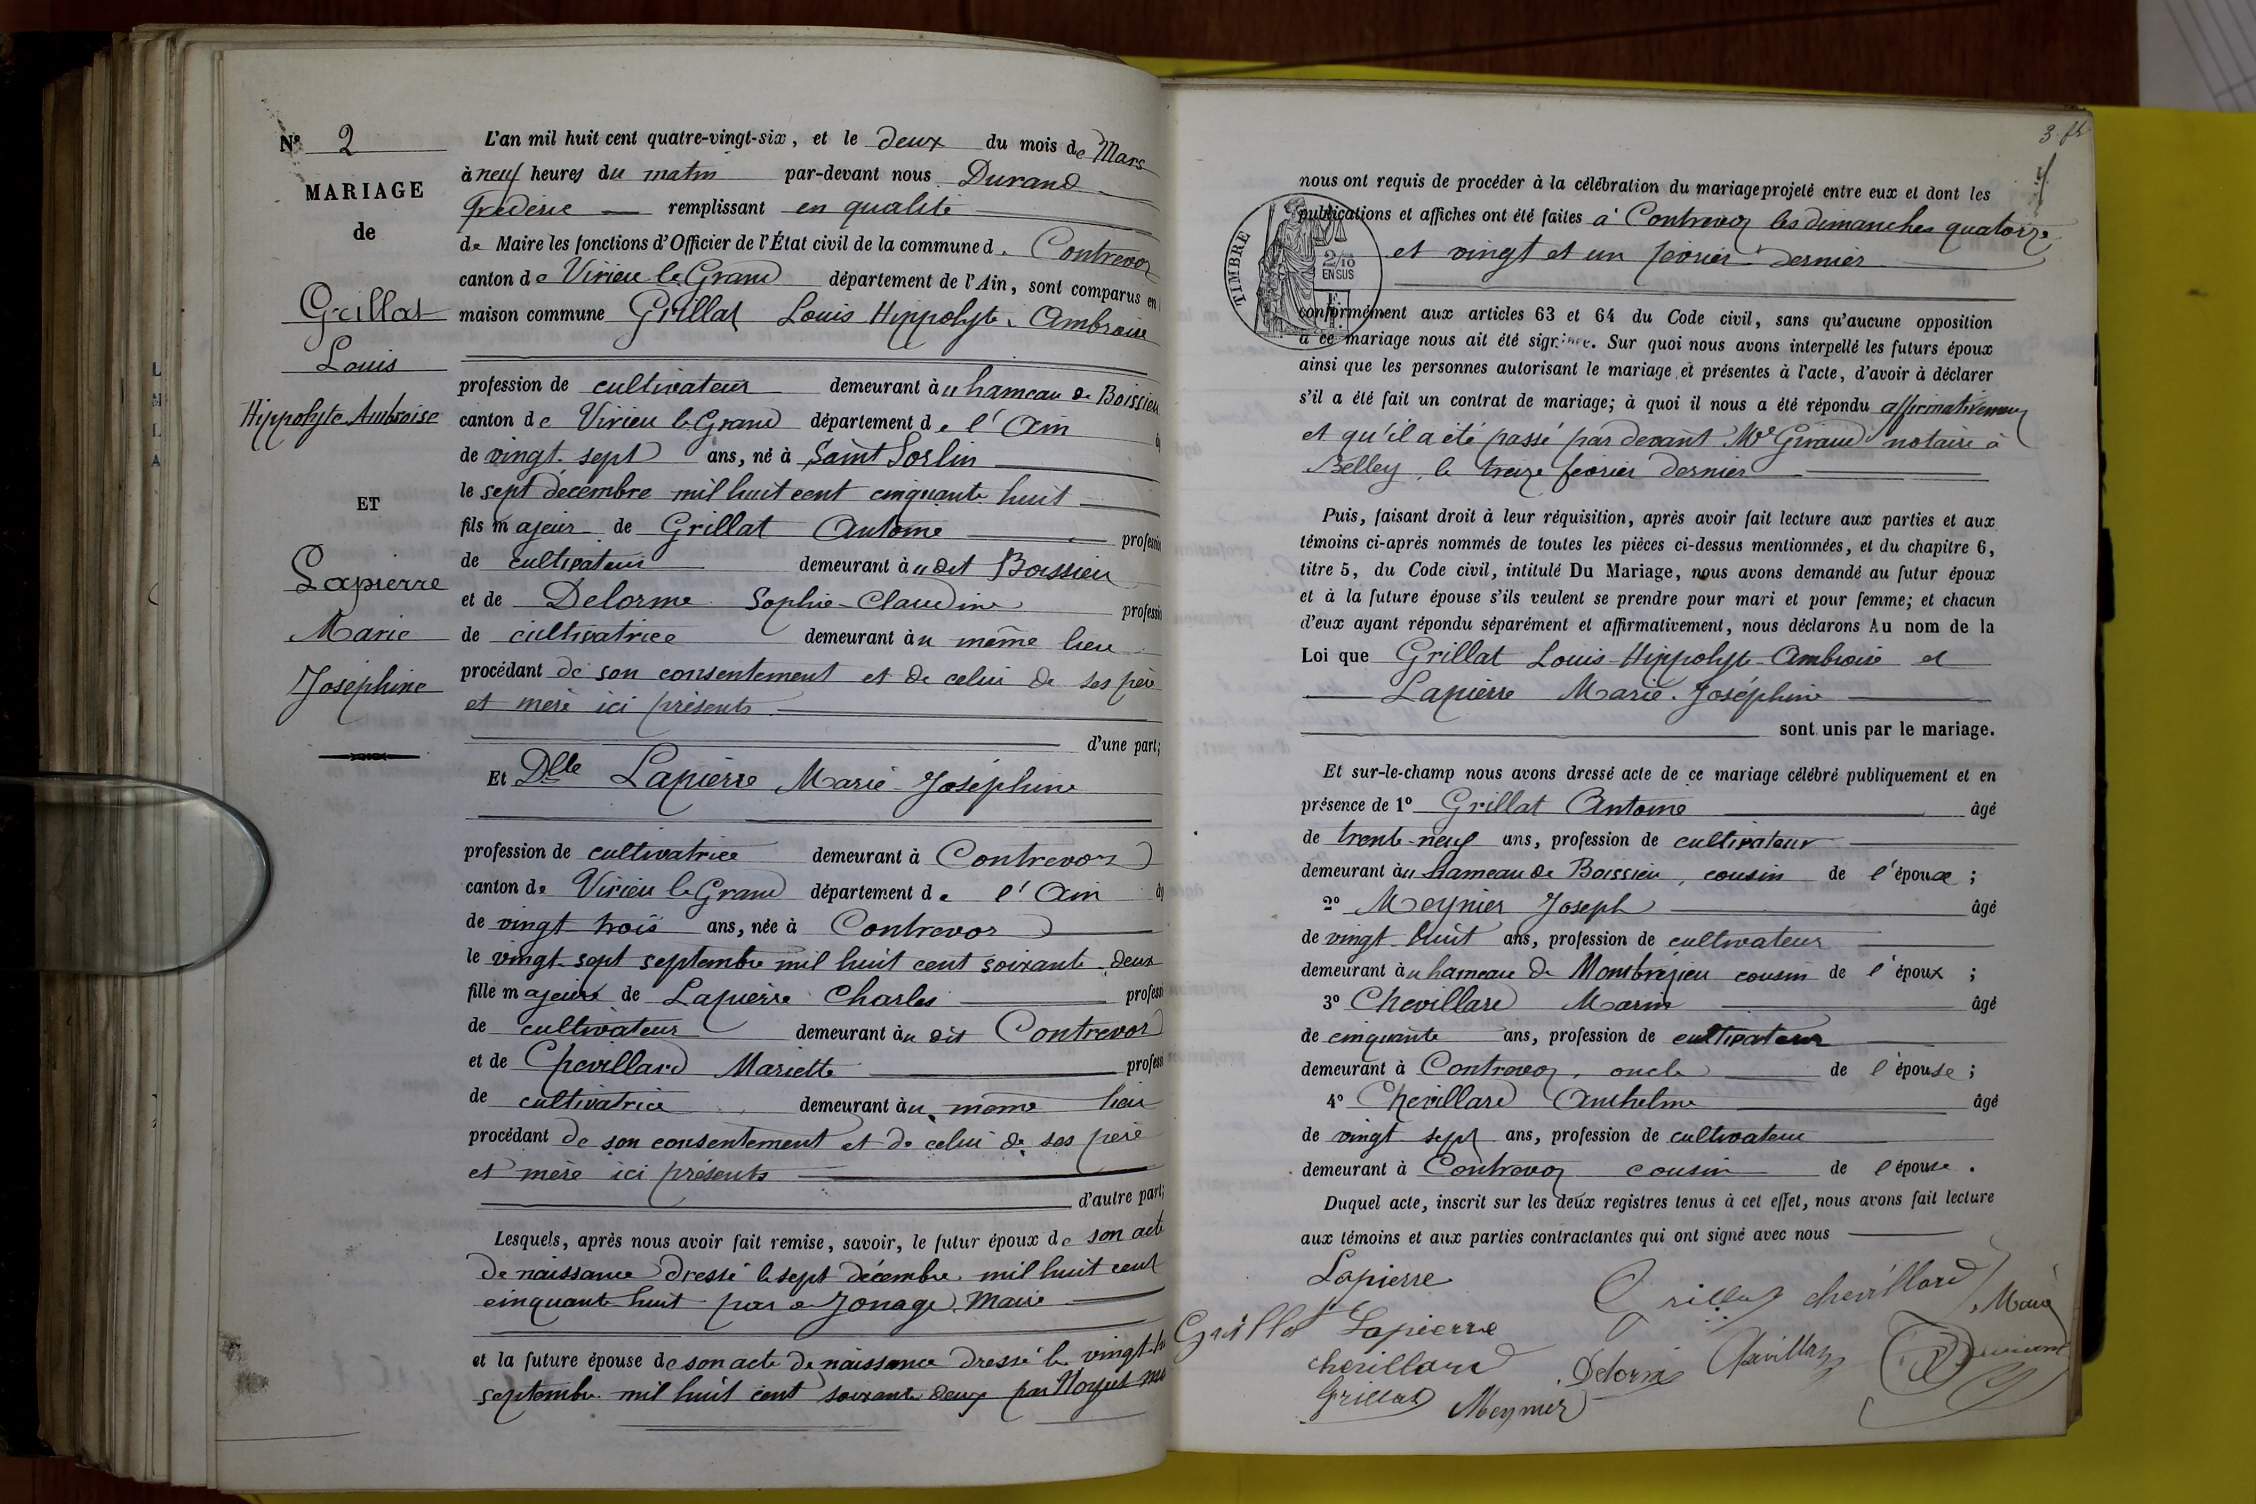 Nº 2
MARIAGE
de
Grillat
Louis
Hippolyte Ambroise
ET
Lapierre
Marie
Joséphine
L'an mil huit cent quatre-vingt-six, et le deux du mois de Mars
à neuf heures du matin par-devant nous Durand
Frédéric remplissant en qualité
de Maire les fonctions d'Officier de l'État civil de la commune d. Contrevoz
canton de Virieu le Grand département de l'Ain, sont comparus en
maison commune Grillat Louis Hippolyte Ambroise
profession de cultivateur demeurant à u hameau de Boissieu
canton de Virieu le Grand département de l'Ain
de vingt sept ans, né à Saint Sorlin
le sept décembre mil huit cent cinquante huit
fils majeur de Grillat Antoine profession
de cultivateur demeurant à u dit Boissieu
et de Delorme Sophie-Claudine profession
de cultivatrice demeurant à u même lieu
procédant de son consentement et de celui de ses père
et mère ici présents
d'une part;
Et Dlle Lapierre Marie Joséphine
profession de cultivatrice demeurant à Contrevoz
canton de Virieu le Grand département de l'Ain
de vingt trois ans, née à Contrevoz
le vingt-sept septembre mil huit cent soixante-deux
fille majeure de Lapierre Charles professi
de cultivateur demeurant à u dit Contrevoz
et de Chevillard Mariette profess
de cultivatrice demeurant à u même lieu
procédant de son consentement et de celui de ses père
et mère ici présents
d'autre part;
Lesquels, après nous avoir fait remise, savoir, le futur époux de son acte
de naissance dressé le sept décembre mil huit cent
cinquante huit par Jonage Maire
et la future épouse de son acte de naissance dressé le vingt
septembre mil huit cent soixante deux par
3. fs
nous ont requis de procéder à la célébration du mariage projeté entre eux et dont les
publications et affiches ont été faites à Contrevoz les dimanches quatorze
et vingt et un février dernier
TIMBRE
2/10
EN SUS
conformément aux articles 63 et 64 du Code civil, sans qu'aucune opposition
à ce mariage nous ait été signifiée. Sur quoi nous avons interpellé les futurs époux
ainsi que les personnes autorisant le mariage et présentes à l'acte, d'avoir à déclarer
s'il a été fait un contrat de mariage; à quoi il nous a été répondu affirmativement
et qu'il a été passé par devant Me Giraud notaire à
Belley, le treize février dernier
Puis, faisant droit à leur réquisition, après avoir fait lecture aux parties et aux
témoins ci-après nommés de toutes les pièces ci-dessus mentionnées, et du chapitre 6,
titre 5, du Code civil, intitulé Du Mariage, nous avons demandé au futur époux
et à la future épouse s'ils veulent se prendre pour mari et pour femme; et chacun
d'eux ayant répondu séparément et affirmativement, nous déclarons Au nom de la
Loi que Grillat Louis Hippolyte Ambroise et
Lapierre Marie Joséphine
sont unis par le mariage.
Et sur-le-champ nous avons dressé acte de ce mariage célébré publiquement et en
présence de 1º Grillat Antoine âgé
de trente-neuf ans, profession de cultivateur
demeurant à u hameau de Boissieu, cousin de l'époux ;
2º Meynier Joseph âgé
de vingt huit ans, profession de cultivateur
demeurant à u hameau de Montbrézieu cousin de l'époux ;
3º Chevillard Marin âgé
de cinquante ans, profession de cultivateur
demeurant à Contrevoz, oncle de l'épouse ;
4º Chevillard Anthelme âgé
de vingt sept ans, profession de cultivateur
demeurant à Contrevoz cousin de l'épouse .
Duquel acte, inscrit sur les deux registres tenus à cet effet, nous avons fait lecture
aux témoins et aux parties contractantes qui ont signé avec nous
Lapierre
Grillat chevillard Marie
Grillat Lapierre
chevillard Delorme Chevillard Durand
Grillat Meynier